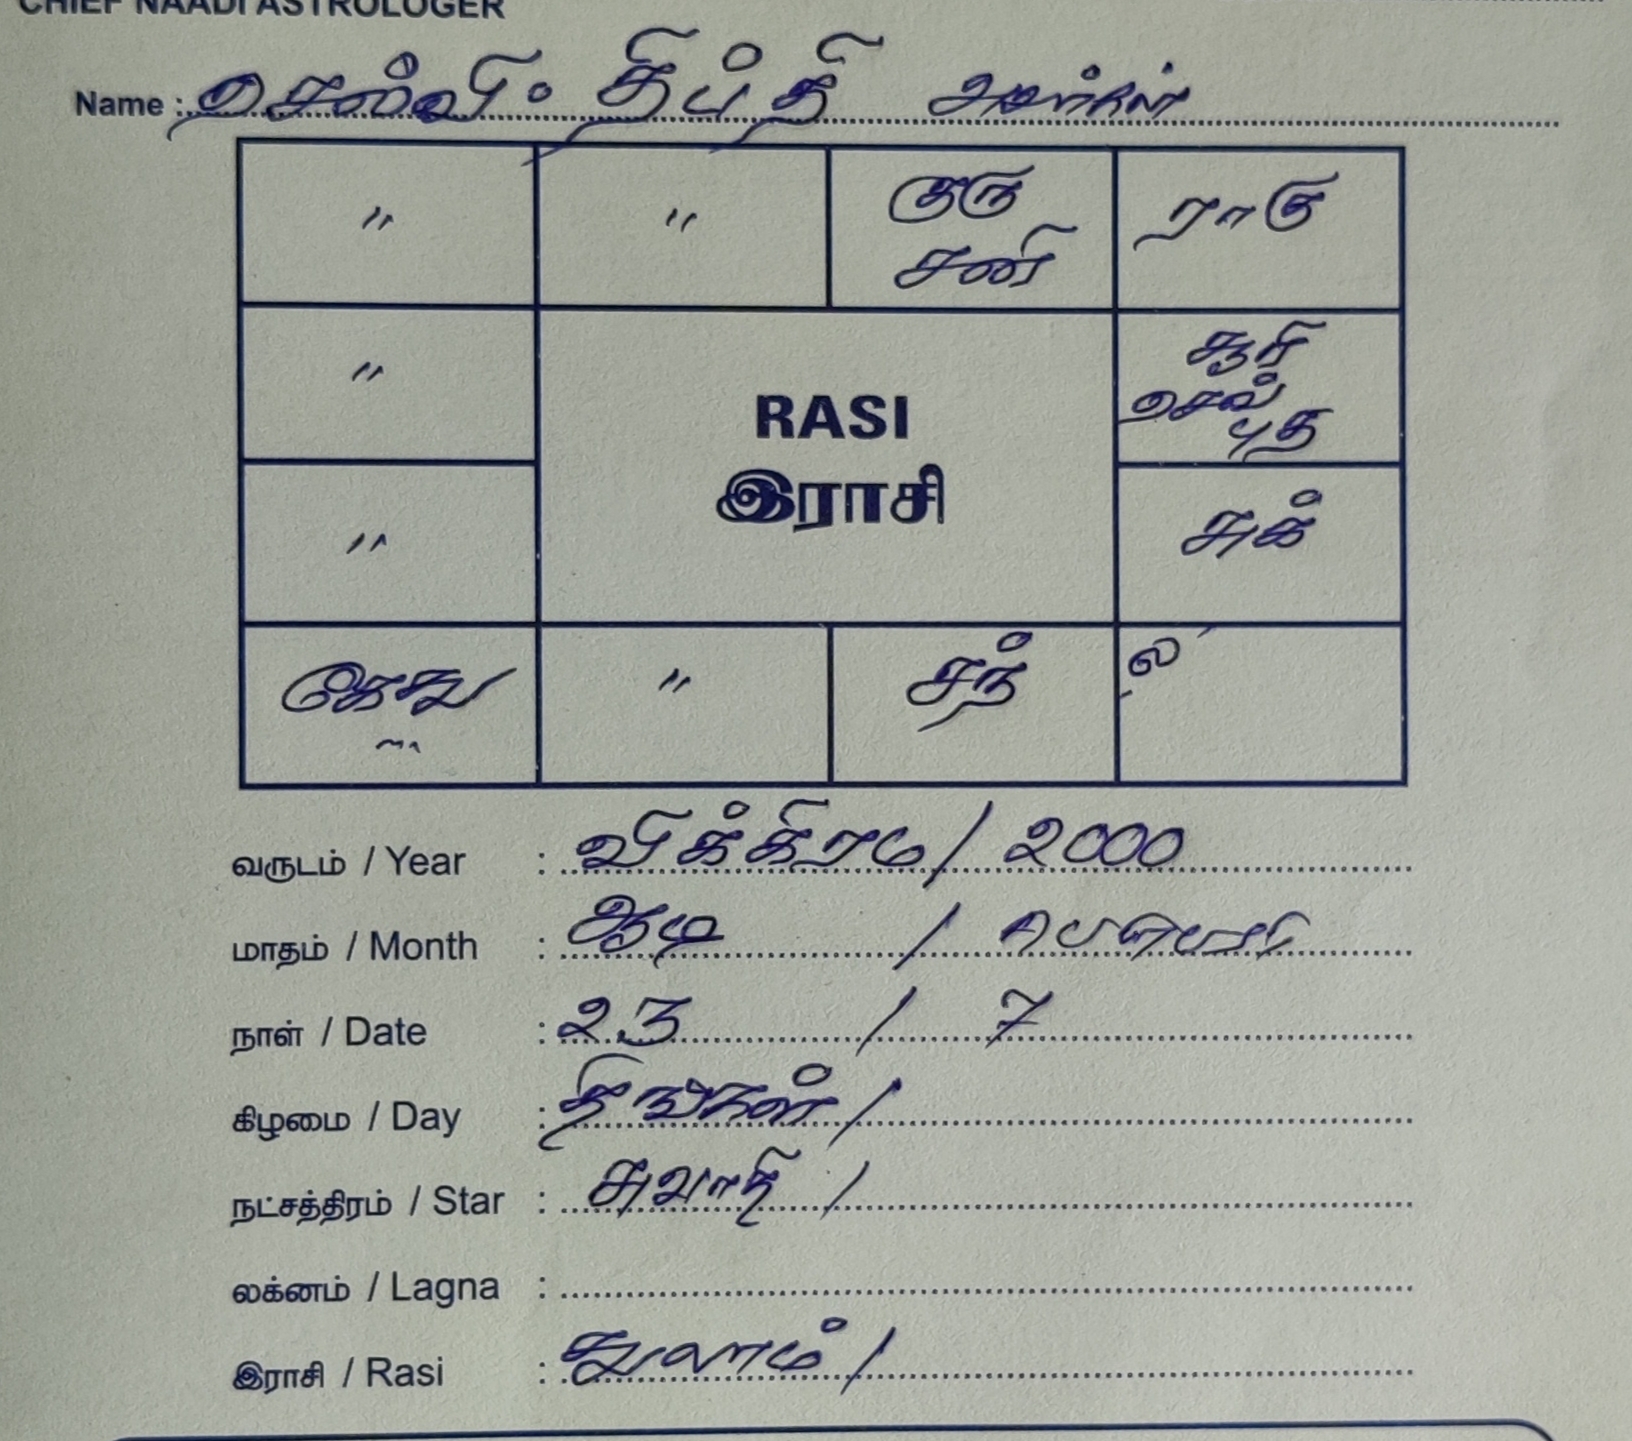 CHIEF NAADI ASTROLOGER
Name : செல்வி: தீப்தி அவர்கள்
" " குரு ராகு
சனி
" சூரி
செவ்
புத
RASI
இராசி
" சுக்
கேது " சந் ல
வருடம் / Year : விக்கிரம / 2000
மாதம் / Month : ஆடி /
நாள் / Date : 23 / 7
கிழமை / Day : திங்கள் /
நட்சத்திரம் / Star : சுவாதி /
லக்னம் / Lagna :
இராசி / Rasi : துலாம் /